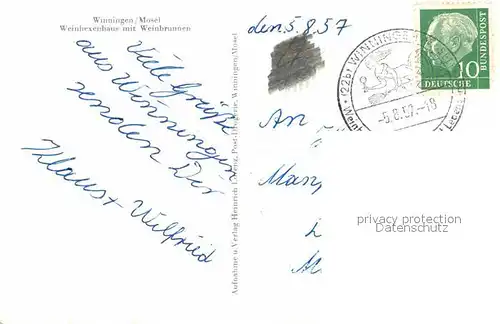 Winningen/Mosel
Weinhexenhaus mit Weinbrunnen
Viele Grüße
aus Winningen
senden Dir
Klaus + Wilfried
Aufnahme u Verlag Heinrich Lorenz, Post-Drogerie, Winningen/Mosel
den 5.8.57
(22b) WINNINGEN
-5.8.57-18
DEUTSCHE
BUNDESPOST
10
An
Man
M
privacy protection
Datenschutz